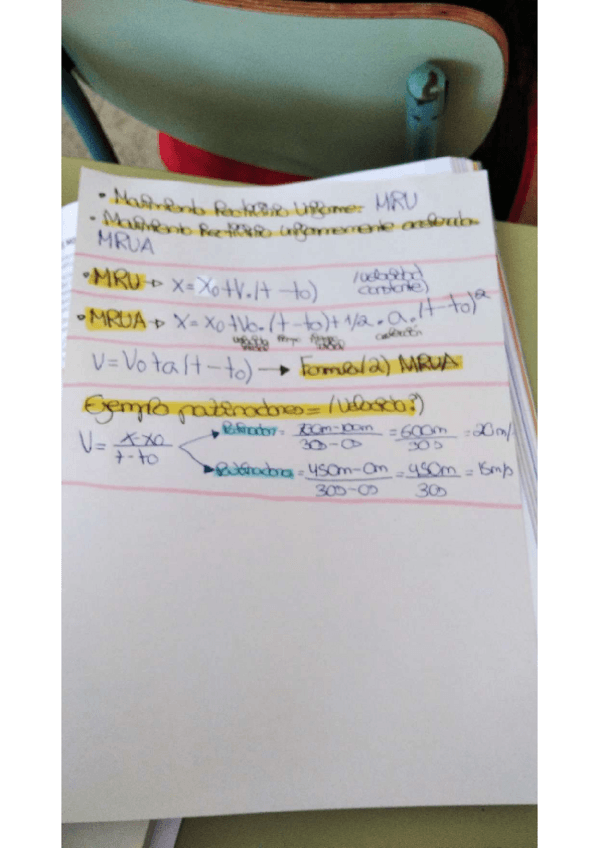 • Movimiento Rectilíneo Uniforme: MRU
• Movimiento Rectilíneo Uniformemente acelerado
MRUA
• MRU → X = X0 + V.(t - t0) (velocidad constante)
• MRUA → X = X0 + V0.(t - t0) + 1/2 . a . (t - t0)²
velocidad tiempo aceleración
V = V0 + a(t - t0) → Formula (2) MRUA
Ejemplo patinadores = (Velocidad?)
V = x-x0 / t-t0
Patinador = 700m-100m / 30s-0s = 600m / 30s = 20m/s
Patinadora = 450m-0m / 30s-0s = 450m / 30s = 15m/s